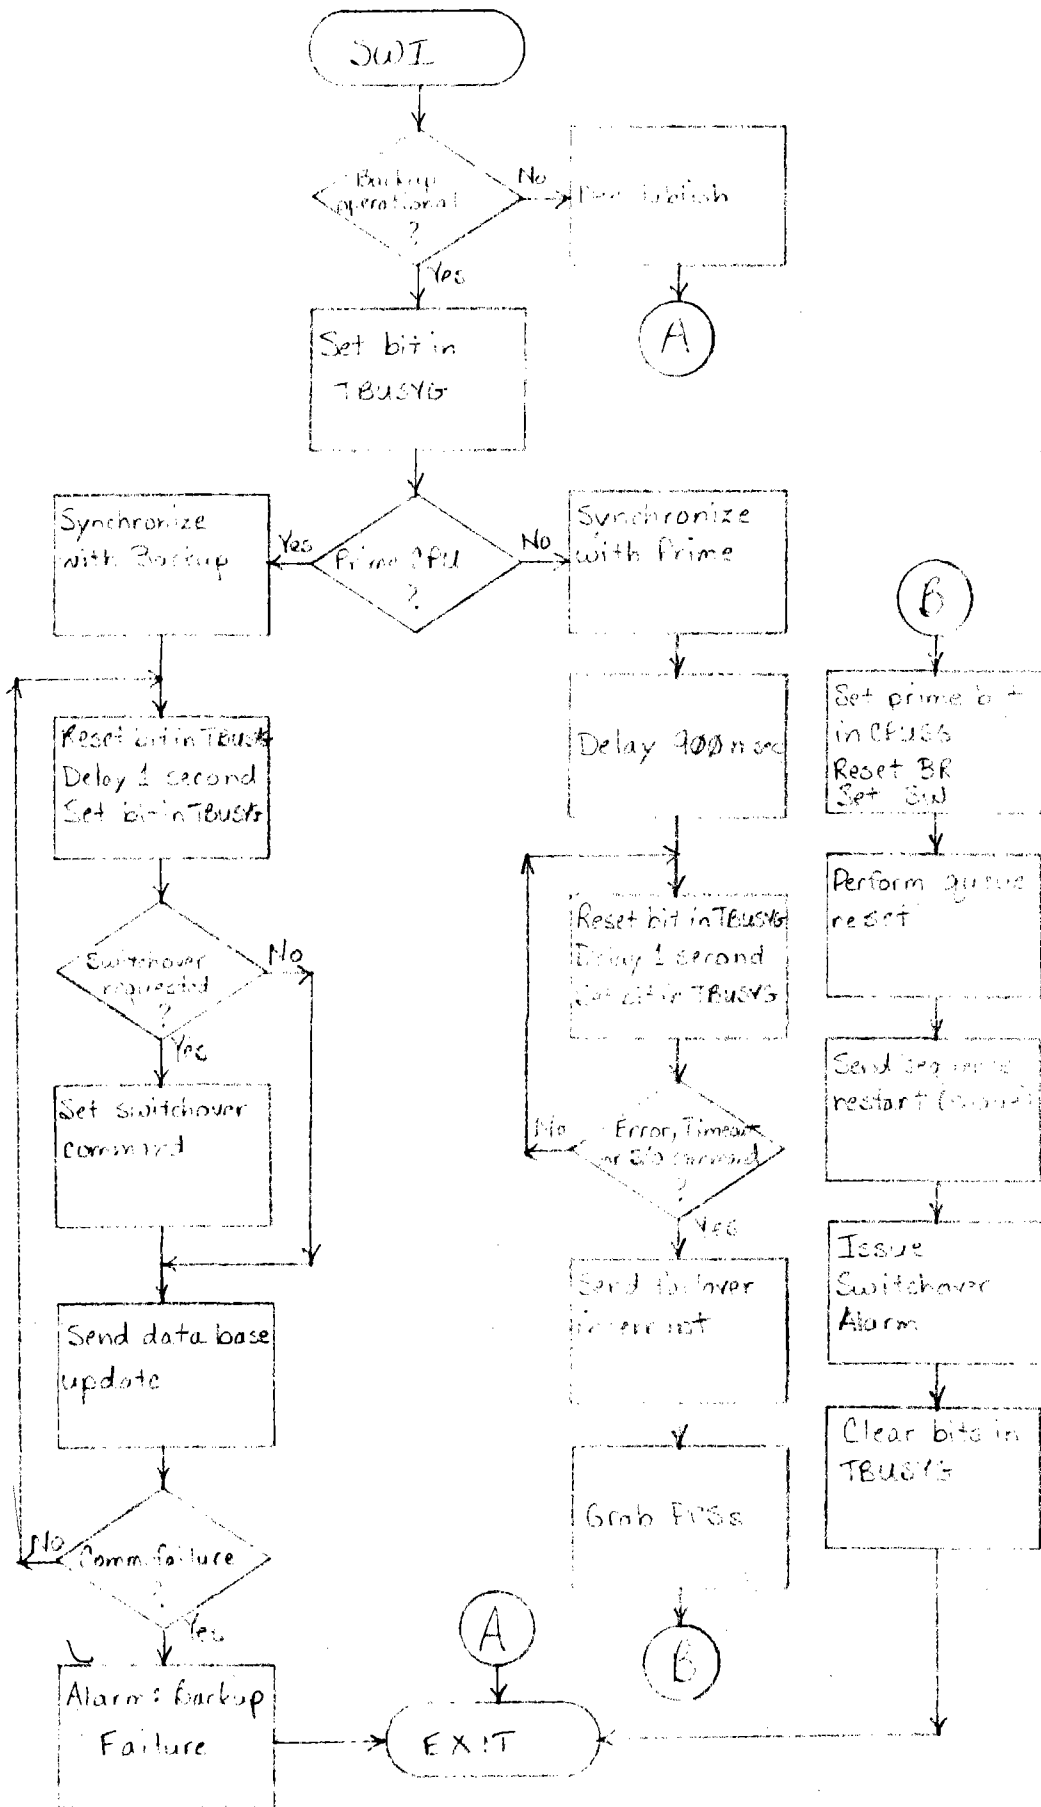 SWI
Backup
operational
?
No
Yes
A
Set bit in
TBUSYG
Synchronize
with Backup
Yes
Prime CPU
?
No
Synchronize
with Prime
B
Reset bit in TBUSYG
Delay 1 second
Set bit in TBUSYG
Delay 900 nsec
Set prime bit
in
Reset BR
Set SW
Switchover
requested
?
No
Yes
Reset bit in TBUSYG
Delay 1 second
Set bit in TBUSYG
Perform queue
reset
Set switchover
command
No
Error, Timeout
or S/O command
?
Yes
Send sequence
restart
Send data base
update
Send failover
Issue
Switchover
Alarm
No
Comm. failure
?
Yes
Grab
Clear bits in
TBUSYG
Alarm: Backup
Failure
A
B
EXIT